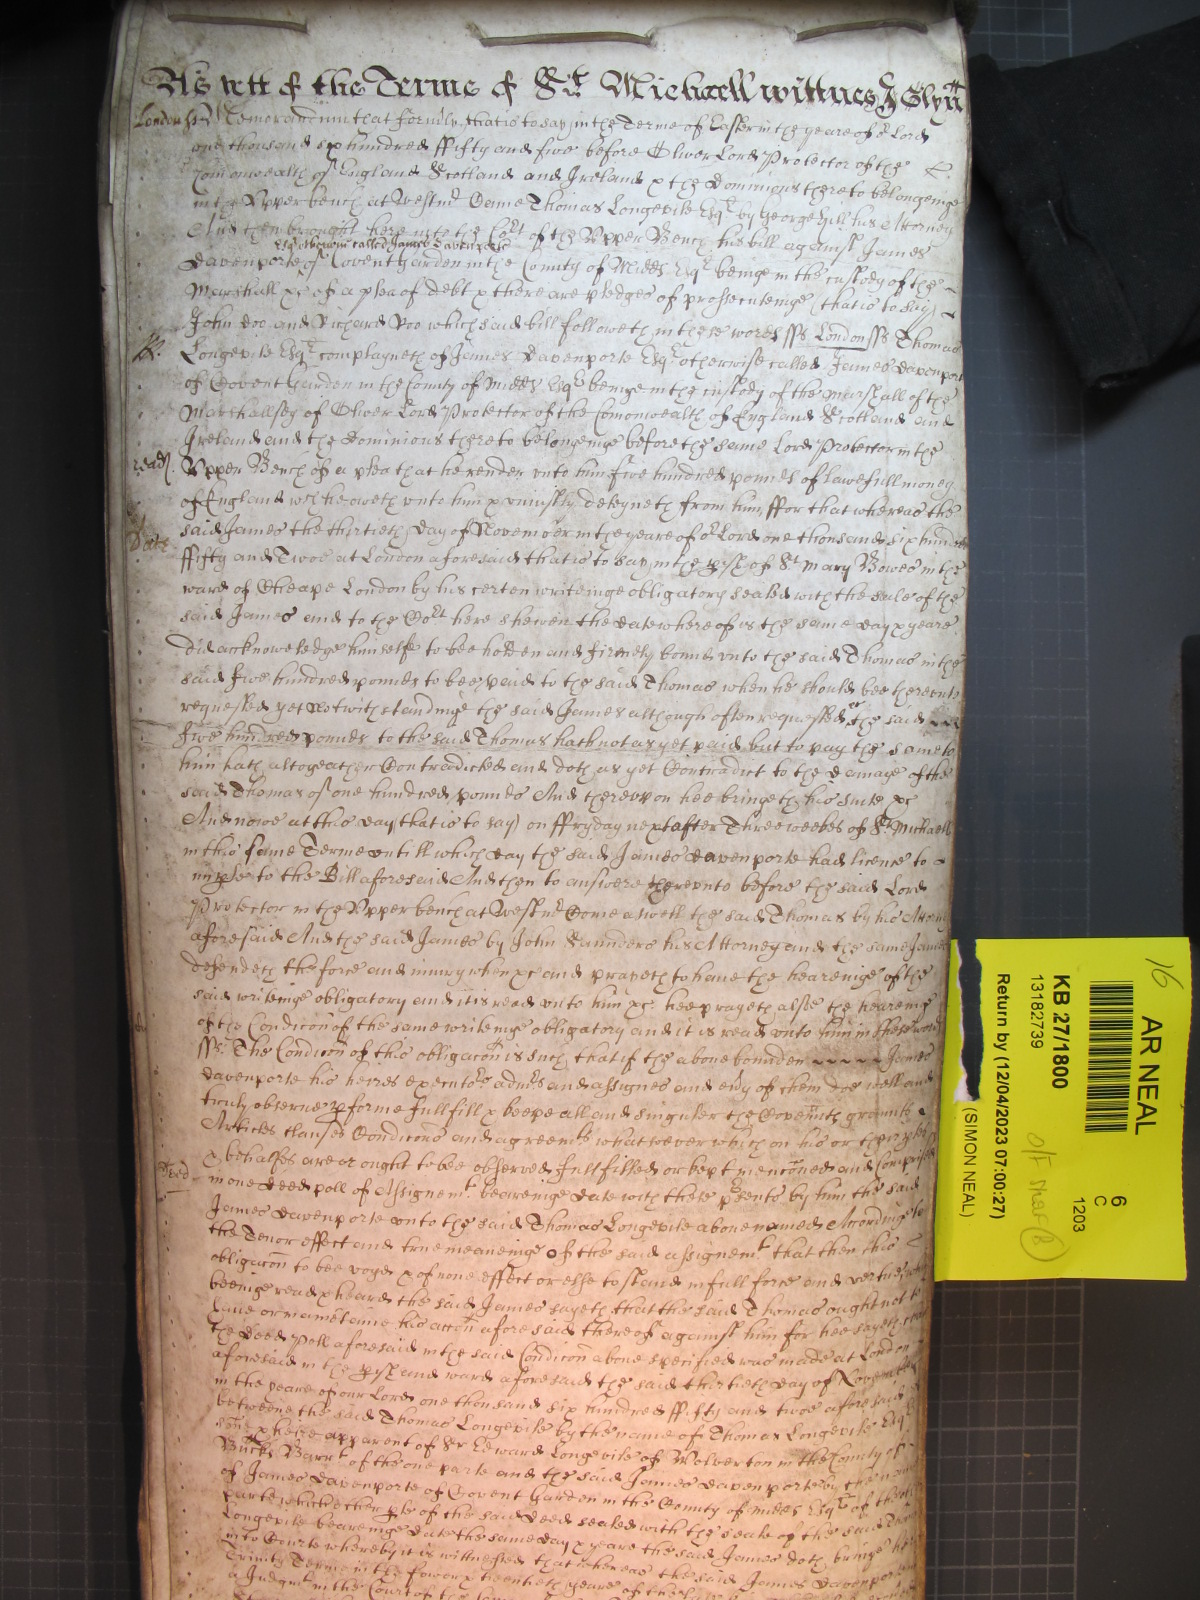 As yett of the Terme of St. Michaell wittnes J Glyn
London ss Memorandum that formerly that is to say in the Terme of Easter in the yeare of or Lord
one thousand six hundred ffifty and five before Oliver Lord Protector of the
Comonwealth of England Scotland and Ireland & the Dominions thereto belongeinge
in the Upper bench at Westmr Came Thomas Longevile Esqr by George Hill his Attorney
And then brought here into the Cort of the Upper Bench his bill against James
Esqr otherwise called James Davenporte
Davenporte of Covent Garden in the County of Midds Esqr beinge in the custody of the
Marshall &c of a plea of debt & there are pledges of prosecuteinge (that is to say)
John Doo and Richard Roo which said bill followeth in these words ss London ss Thomas
Longevile Esqr complayneth of James Davenporte Esqr otherwise called James Davenport
of Covent Garden in the County of Midds Esqr beinge in the custody of the Marshall of the
Marshallsey of Oliver Lord Protector of the Comonwealth of England Scotland and
Ireland and the Dominions thereto belongeinge before the same Lord Protector in the
Upper Bench of a plea that he render unto him five hundred pounds of lawefull money
of England wch he oweth unto him & uniustly deteyneth from him, ffor that whereas the
said James the thirtieth day of November in the yeare of or Lord one thousand six hundred
Date
ffifty and Twoe at London aforesaid that is to say in the pish of St Mary Bowes in the
ward of Cheape London by his certen writeinge obligatory sealed with the seale of the
said James and to the Cort here shewen the date whereof is the same day & yeare
did acknowledge himselfe to bee holden and firmely bound unto the said Thomas in the
said five hundred pounds to bee paid to the said Thomas when he should bee thereunto
requested yet notwithstandinge the said James although often requested &c the said
five hundred pounds to the said Thomas hath not as yet paid but to pay the same to
him hath altogeather Contradicted and doth as yet Contradict to the damage of the
said Thomas of one hundred pounds And thereupon hee bringeth his suite &c
And nowe at this day (that is to say) on ffryday next after Three weekes of St Michaell
in this same Terme untill which day the said James Davenporte had licence to
imple to the Bill aforesaid And then to answere thereunto before the said Lord
Protector in the Upper bench at Westmr Come aswell the said Thomas by his Attorny
aforesaid And the said James by John Saunders his Attorney and the same James
defendeth the force and iniury when &c and prayeth to have the heareinge of the
said writeinge obligatory and it is read unto him &c. hee prayeth alsoe the heareinge
of the Condicon of the same writeinge obligatory and it is read unto him in these words
ss. The Condicon of this obligacon is such that if the above bounden James
Davenporte his heires executors admrs and assignes and evy of them doe well and
truly observe pforme fullfill & keepe all and singuler the Covennts graunts
Articles clauses Condicons and agreemts whatsoever which on his or their ptes
& behalfes are or ought to bee observed fullfilled or kept menconed and comprised
Deed
in one deed poll of Assignemt beareinge date with these psents by him the said
James Davenporte unto the said Thomas Longevile above named According to
the Tenor effect and true meaneinge of the said assignemt that then this
obligacon to bee voyd & of none effect or else to stand in full force and vertue
beeinge read & heard the said James sayeth that the said Thomas ought not to
have or mainetaine his accon aforesaid thereof against him for hee sayeth that
the deed Poll aforesaid in the said Condicon above specified was made at London
aforesaid in the pish and ward aforesaid the said thirtieth day of November
in the yeare of our Lord one thousand six hundred ffifty and twoe aforesaid
betweene the said Thomas Longevile by the name of Thomas Longevile Esqr
sonn & heire apparent of Sr Edward Longevile of Wolverton in the County of
Bucks Barrt of the one parte and the said James Davenporte by the name
of James Davenporte of Covent Garden in the County of Midds Esqr of the other
parte which other pte of the said deed sealed with the seale of the said Thomas
Longevile beareinge date the same day & yeare the said James doth bringe here
into Courte whereby it is wittnessed that whereas the said James Davenporte
Trinity Terme in the fower & twentieth yeare of the
a Judgmt in the Court of
16
AR NEAL
KB 27/1800
13182739
Return by (12/04/2023 07:00:27)
(SIMON NEAL)
6
C
1203